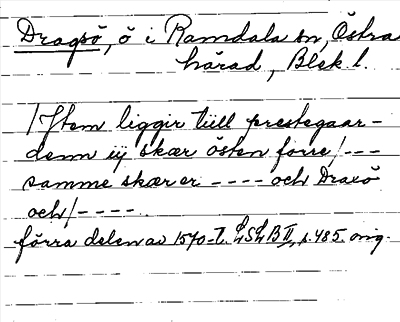 Dragsö, ö i Ramdala sn, Östra
härad, Blek l.
/Jtem liggir tiill prestegaar-
denn iij skær östen forre/---
samme skær er ---- och Draxö
och/----.
förra delen av 1570-t. LSLB II, s. 485. orig.